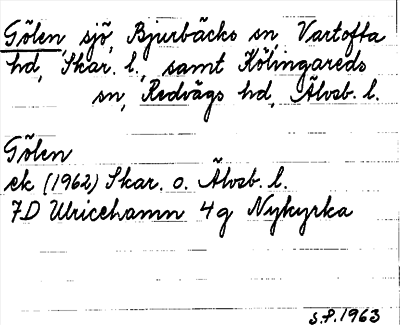 Gölen, sjö, Bjurbäcks sn, Vartofta
hd, Skar. l., samt Kölingareds
sn, Redvägs hd, Älvsb. l.
Gölen
ek (1962) Skar. o. Älvsb. l.
7D Ulricehamn 4g Nykyrka
S.P. 1963